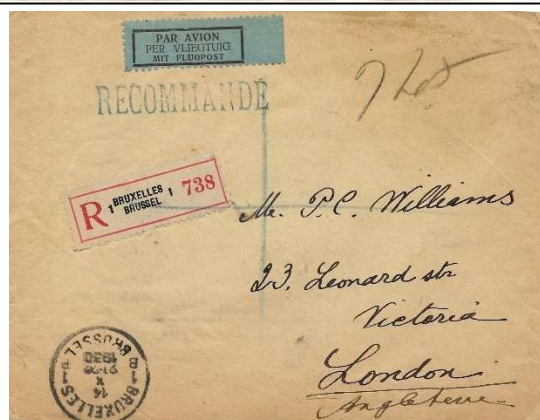 PAR AVION
PER VLIEGTUIG
MIT FLUGPOST
RECOMMANDÉ
R 1 BRUXELLES 1 738
BRUSSEL
Mr. P.C. Williams
23, Leonard str
Victoria
London
Angleterre
1 BRUXELLES 1
14
X
1930
B BRUSSEL B